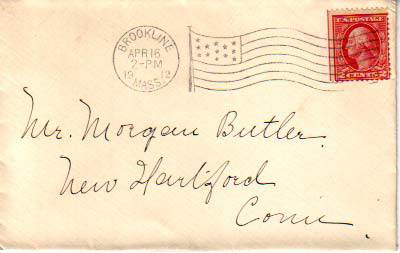 BROOKLINE
APR 16
2-PM
1913
MASS.
U.S. POSTAGE
2 CENTS 2
Mr. Morgan Butler
New Hartford
Conn.